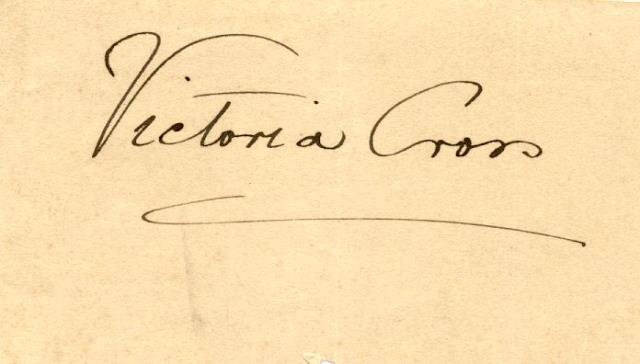 Victoria Cross